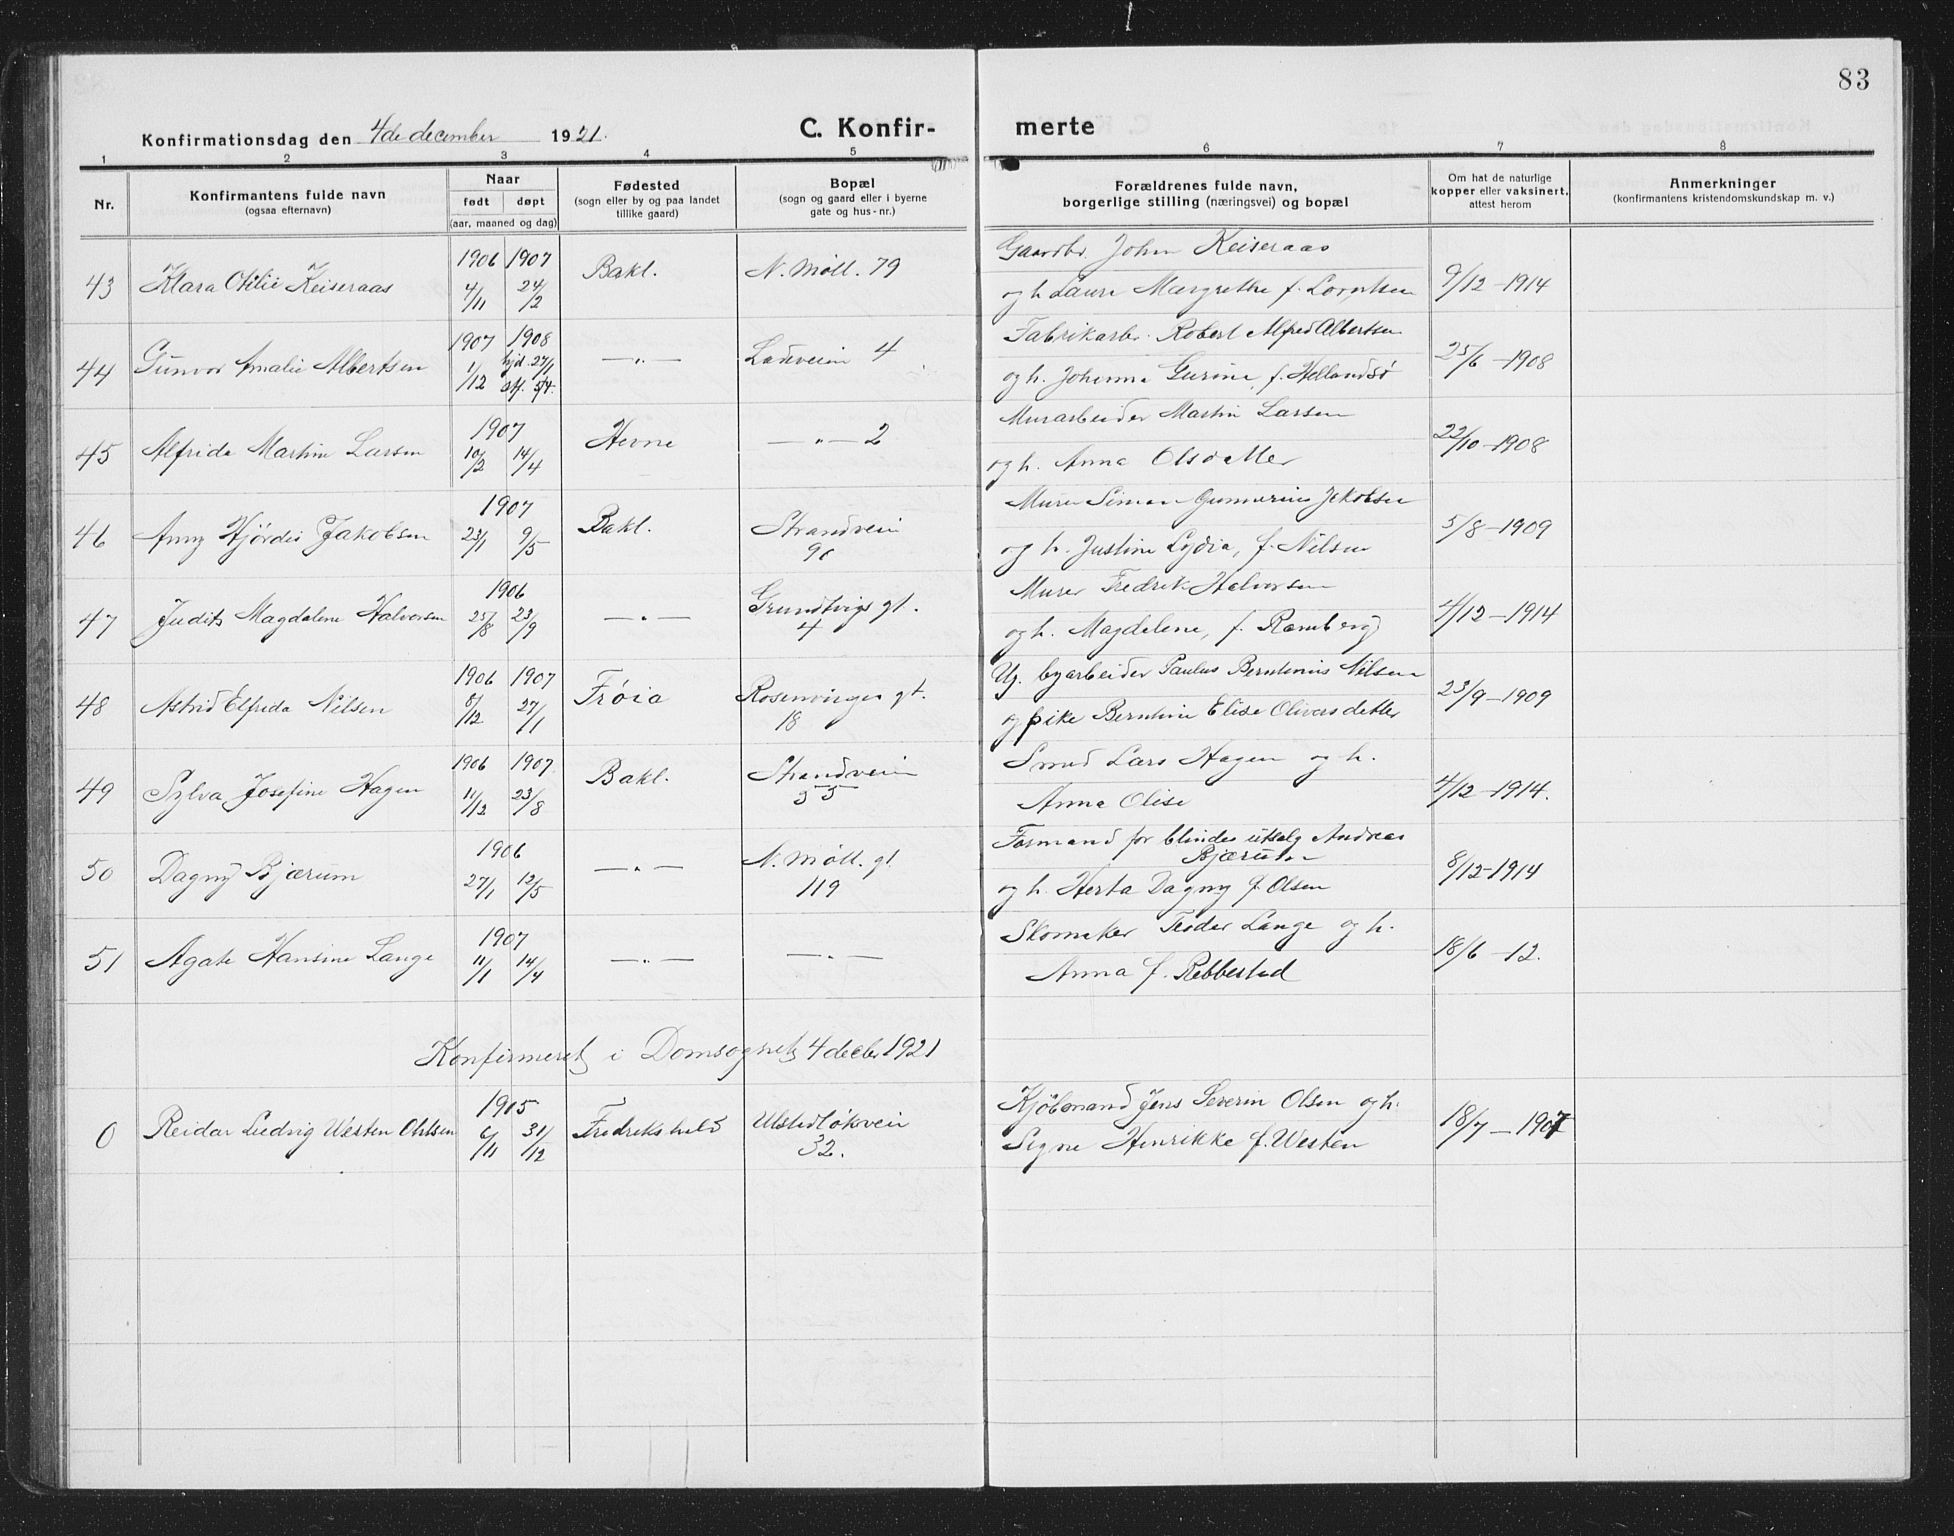 83
Konfirmationsdag den 4de december 1921.
C. Konfir-
merte
1 2 3 4 5 6 7 8
Nr.
Konfirmantens fulde navn
(ogsaa efternavn)
Naar
født døpt
(aar, maaned og dag)
Fødested
(sogn eller by og paa landet
tillike gaard)
Bopæl
(sogn og gaard eller i byerne
gate og hus-nr.)
Forældrenes fulde navn,
borgerlige stilling (næringsvei) og bopæl
Om hat de naturlige
kopper eller vaksinert,
attest herom
Anmerkninger
(konfirmantens kristendomskundskap m. v.)
1906 1907
43 Klara Otilie Keiseraas 4/11 24/2 Bakl. N. Møll. 79
Gaardbr. John Keiseraas
og h. Laura Margrethe f. Lorntsen 9/12-1914
1907 1908
44 Gunvor Amalie Albertsen 1/12 hjd. 27/1 af. 5/4. —„— Ladeveien 4
Fabrikarb. Robert Alfred Albertsen
og h. Johanna Gurine, f. Hellandsø 25/6-1908
1907
45 Alfrida Martine Larsen 10/2 14/4 Hevne —„— 2
Murarbeider Martin Larsen
og h. Anna Olsdatter 22/10-1908
1907
46 Anny Hjørdis Jakobsen 23/1 9/5 Bakl. Strandveien 96
Murer Simon Gunnerius Jakobsen
og h. Justine Lydia, f. Nilsen 5/8-1909
1906
47 Judith Magdalene Halvorsen 25/8 23/9 —„— Grundtvigs gt. 4
Murer Fredrik Halvorsen
og h. Magdalene, f. Ramberg 4/12-1914
1906 1907
48 Astrid Elfrida Nilsen 8/12 27/1 Frøia Rosenvinges gt. 18
Ug. byarbeider Paulus Berntinius Nilsen
og pike Berntine Elise Oliversdatter 23/9-1909
1906 1907
49 Sylva Josefine Hagen 11/12 23/8 Bakl. Strandveien 55
Smed Lars Hagen og h.
Anna Olise 4/12-1914.
1906
50 Dagny Bjærum 27/1 12/5 —„— N. Møll. gt. 119
Formand for blindes utsalg Andreas
Bjærum
og h. Herta Dagny f. Olsen 8/12-1914
1907
51 Agate Hansine Lange 11/1 14/4 —„— —„—
Skomaker Teodor Lange og h.
Anna f. Rebbestad 18/6-12.
Konfirmeret i Domsognet 4 decbr 1921
1905
0 Reidar Ludvig Westen Ohlsen 6/11 31/12 Fredrikshald Ulstadløkvein 32.
Kjøbmand Jens Severin Olsen og h.
Signe Henrikke f. Westen 18/7-1907